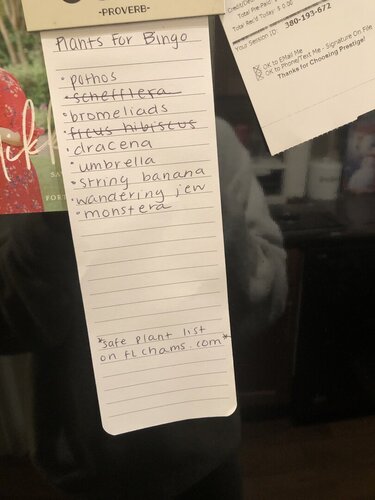 -PROVERB-
Plants For Bingo
· pothos
· schefflera
· bromeliads
· ficus hibiscus
· dracena
· umbrella
· string banana
· wandering jew
· monstera
*safe plant list
on flchams.com*
Total Rec'd Today $ 0.00
Your Session ID: 380-193-672
OK to EMail Me
OK to Phone/Text Me - Signature On File
Thanks for Choosing Prestige!